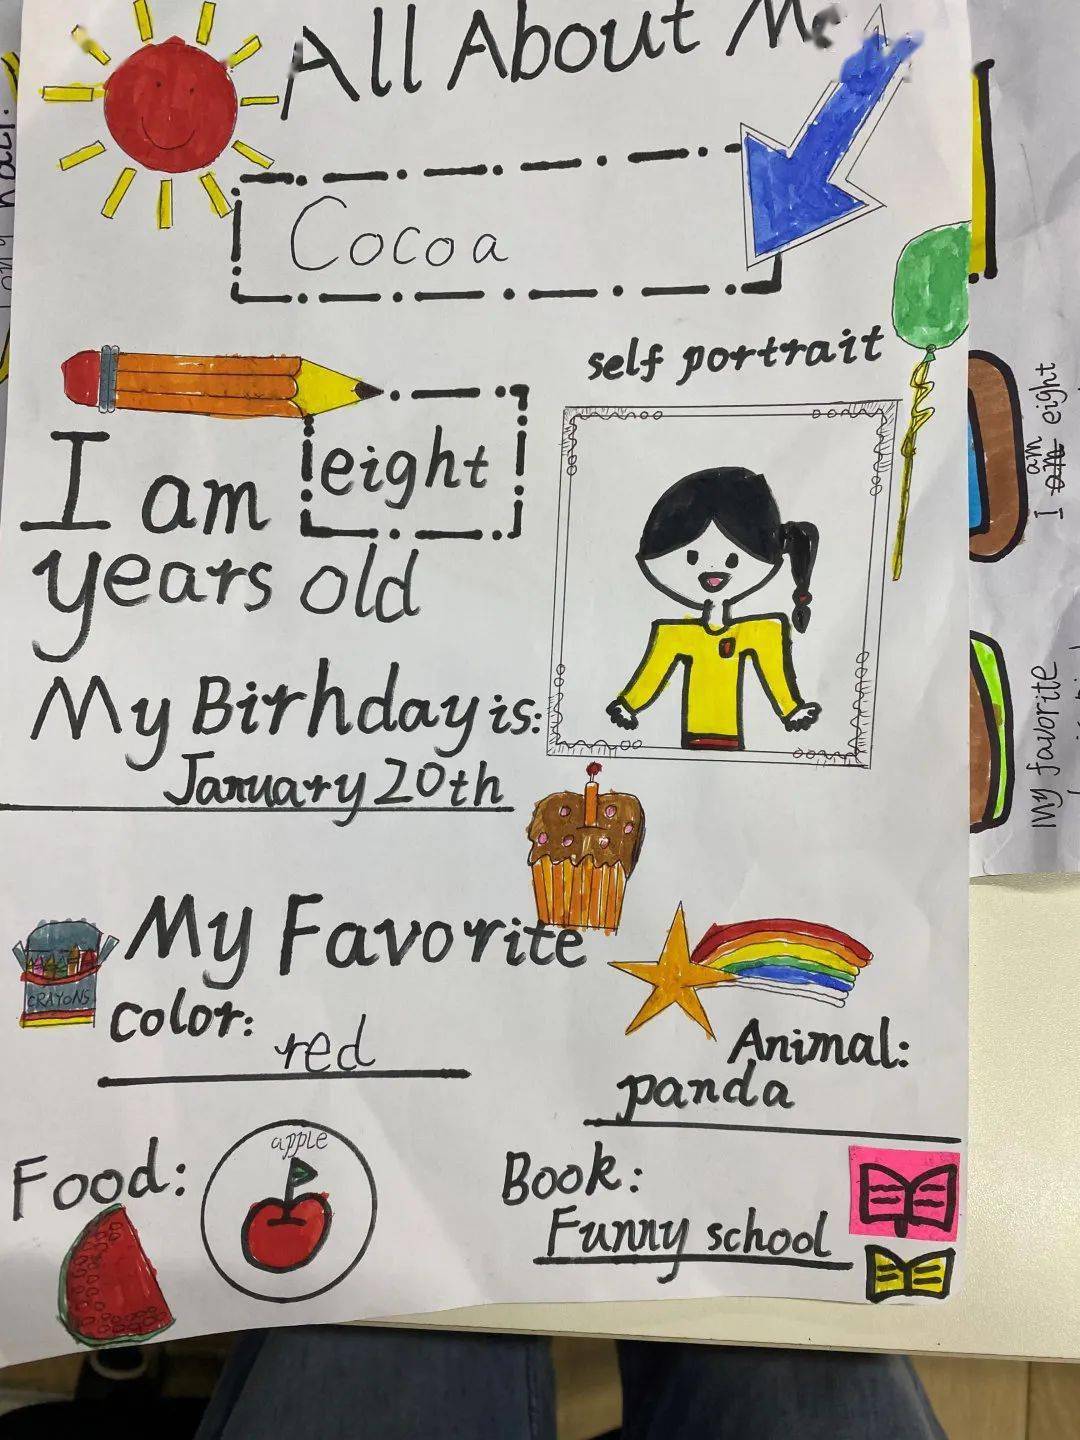 All About Me
Cocoa
self portrait
eight
I am
years old
My Birhday is:
January 20th
My Favorite
CRAYONS
color:
red
Animal:
panda
Food:
apple
Book:
Funny school
I am am eight
My favorite